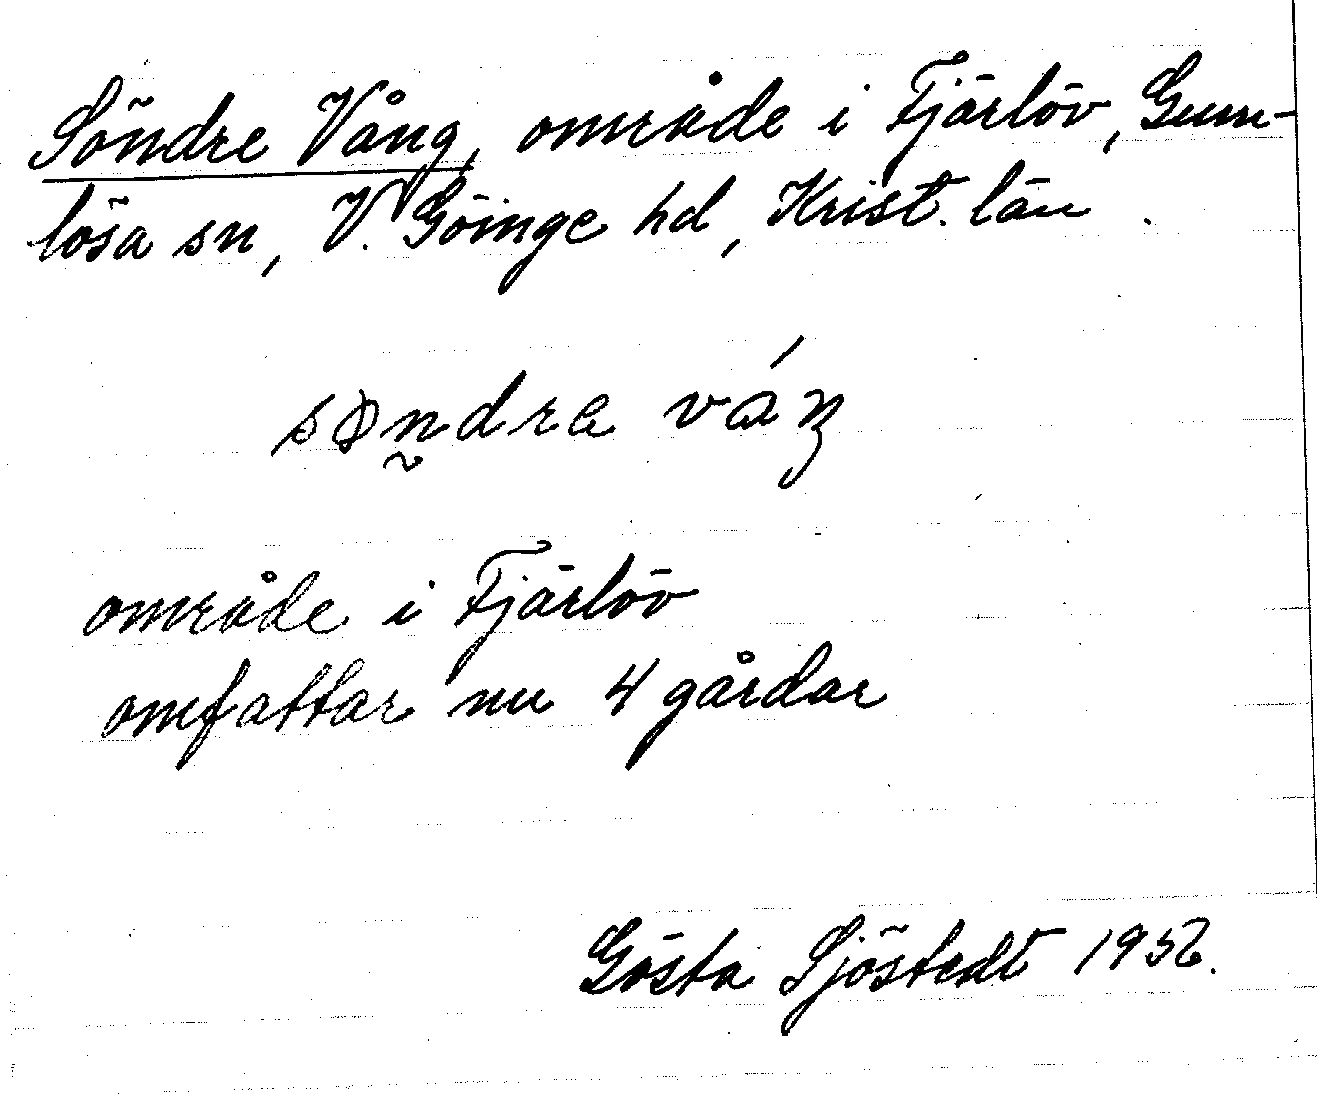 Söndre Vång, område i Fjärlöv, Gum-
lösa sn, V. Göinge hd, Krist. län.
område i Fjärlöv
omfattar nu 4 gårdar
Gösta Sjöstedt